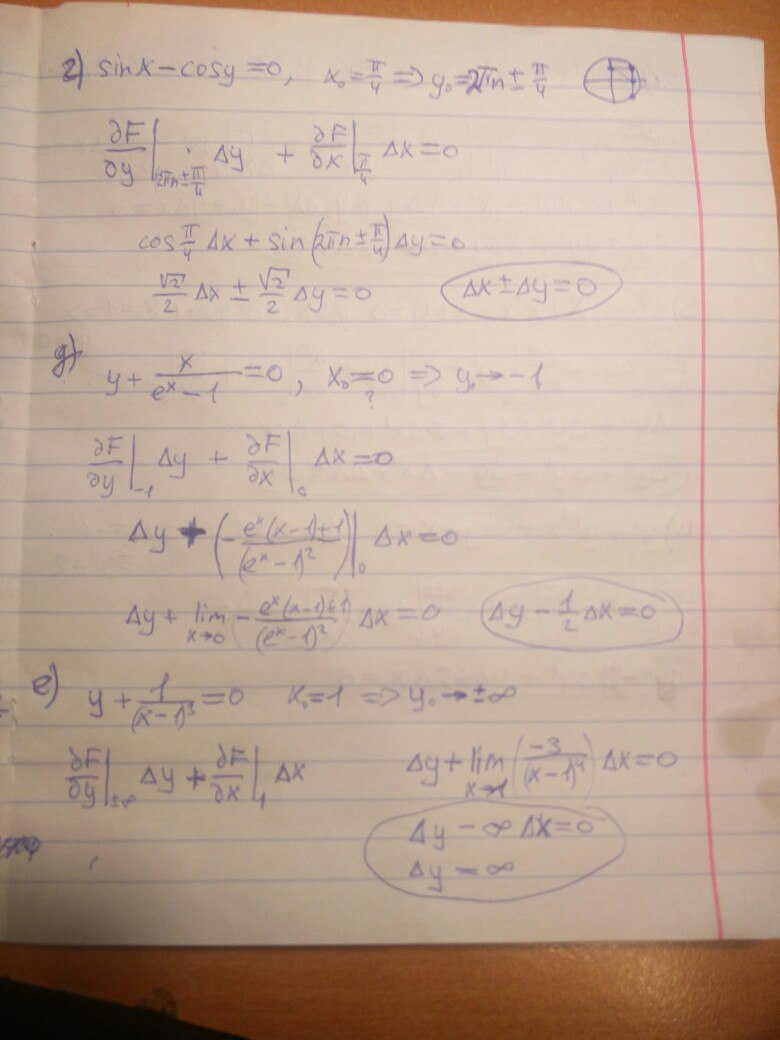 г) sinx − cosy = 0, x₀ = π/4 ⇒ y₀ = 2πn ± π/4
∂F/∂y |_{2πn±π/4} · Δy + ∂F/∂x |_{π/4} Δx = 0
cos π/4 Δx + sin(2πn ± π/4) Δy = 0
√2/2 Δx ± √2/2 Δy = 0 Δx ± Δy = 0
д) y + x/(eˣ − 1) = 0, x₀ = 0 ⇒ y₀ → −1
?
∂F/∂y |_{−1} Δy + ∂F/∂x |_0 Δx = 0
Δy + (− (eˣ(x−1)+1)/(eˣ−1)²) |_0 Δx = 0
Δy + lim_{x→0} − (eˣ(x−1)+1)/(eˣ−1)² Δx = 0 Δy − 1/2 Δx = 0
е) y + 1/(x−1)³ = 0 x₀ = 1 ⇒ y₀ → ±∞
∂F/∂y |_{±∞} Δy + ∂F/∂x |_1 Δx Δy + lim_{x→1} (−3/(x−1)⁴) Δx = 0
Δy − ∞ Δx = 0
Δy = ∞